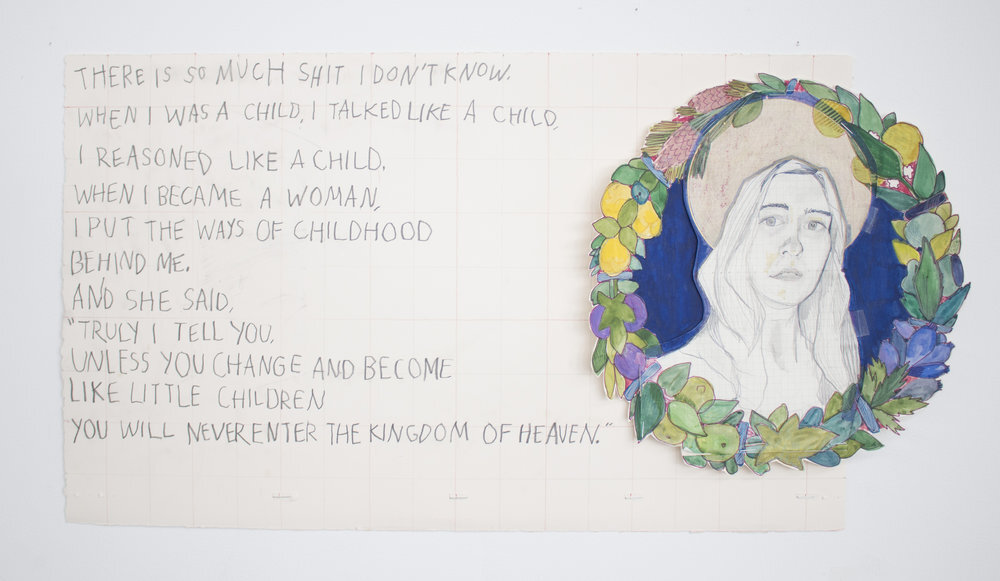 THERE IS SO MUCH SHIT I DON'T KNOW.
WHEN I WAS A CHILD, I TALKED LIKE A CHILD,
I REASONED LIKE A CHILD.
WHEN I BECAME A WOMAN,
I PUT THE WAYS OF CHILDHOOD
BEHIND ME.
AND SHE SAID,
"TRULY I TELL YOU,
UNLESS YOU CHANGE AND BECOME
LIKE LITTLE CHILDREN
YOU WILL NEVER ENTER THE KINGDOM OF HEAVEN."